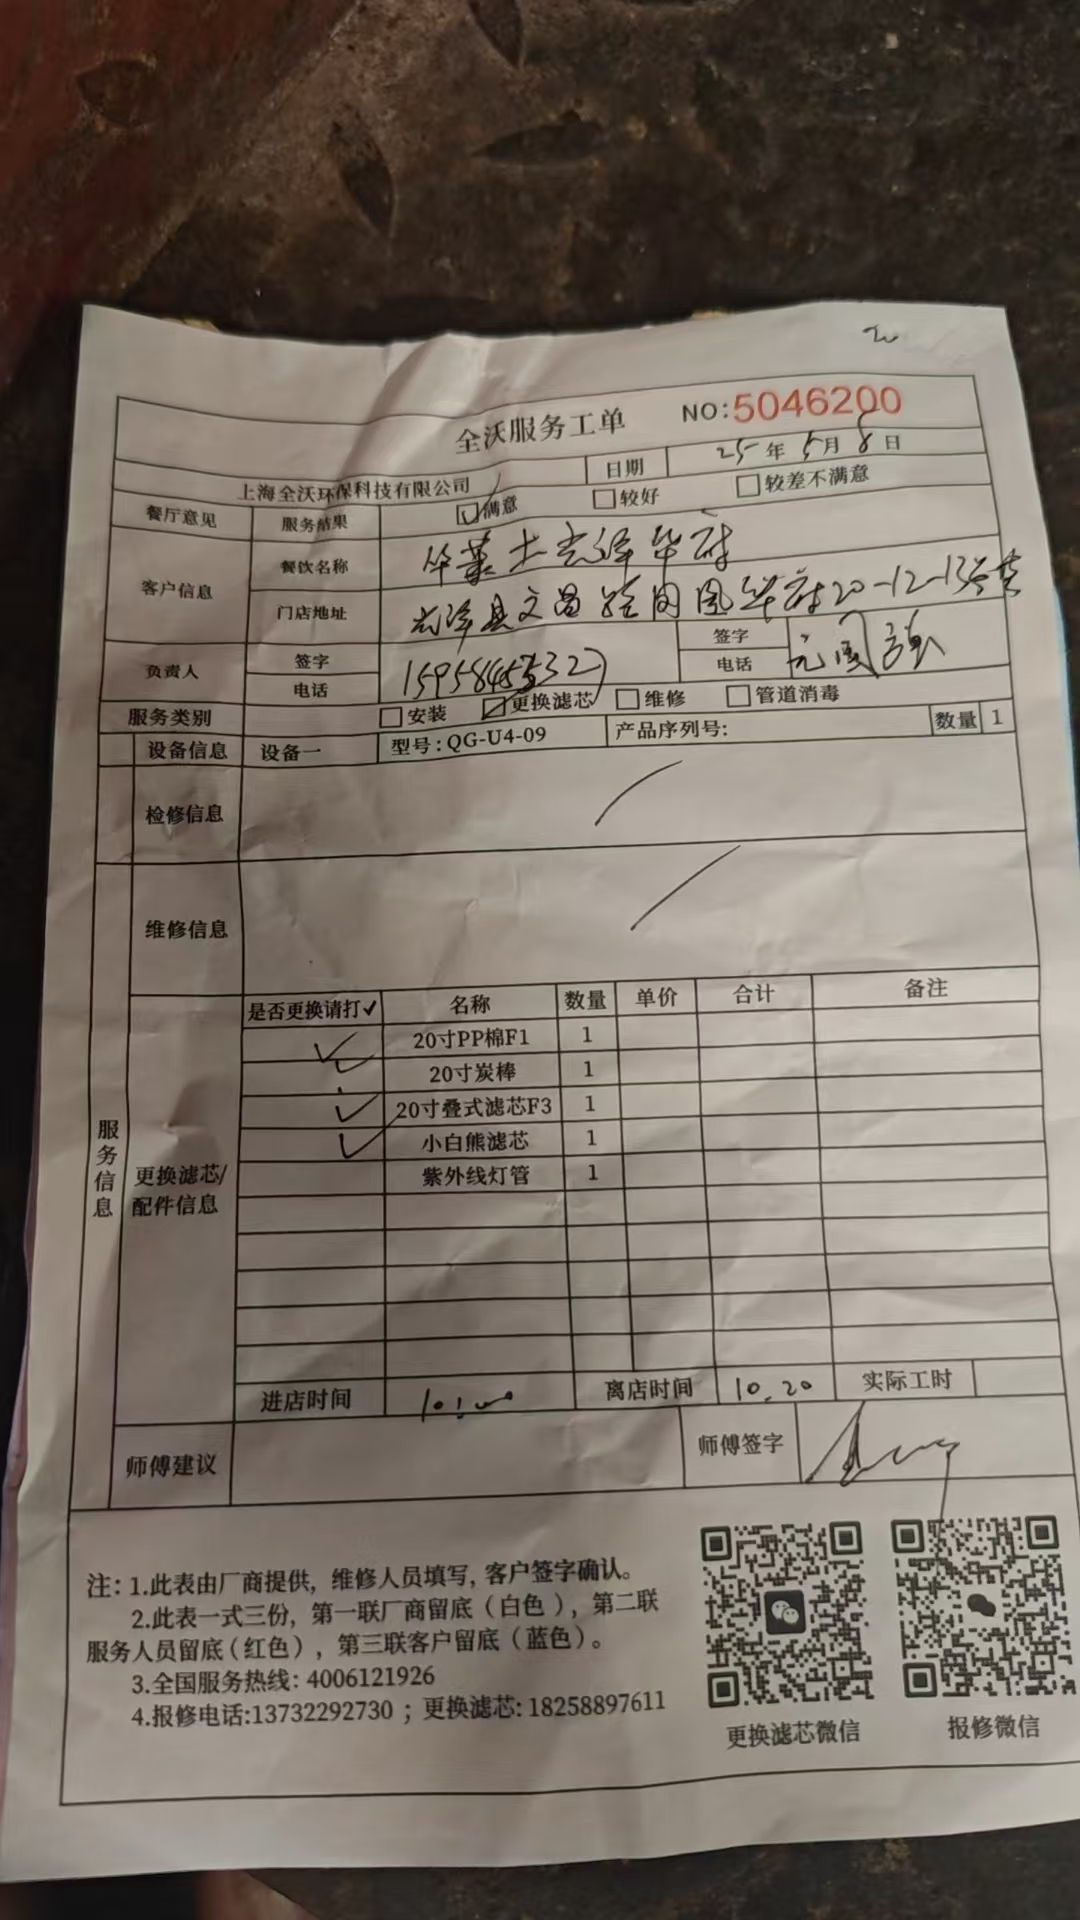 全沃服务工单 NO:5046200
上海全沃环保科技有限公司 日期 25年5月8日
餐厅意见 服务结果 满意 较好 较差不满意
客户信息 餐饮名称 华莱士 华府
门店地址 县文昌 华府20-12-13
负责人 签字 电话 签字 电话
服务类别 安装 更换滤芯 维修 管道消毒
设备信息 设备一 型号:QG-U4-09 产品序列号: 数量 1
检修信息
维修信息
服务信息
更换滤芯/
配件信息
是否更换请打✓ 名称 数量 单价 合计 备注
✓ 20寸PP棉F1 1
✓ 20寸炭棒 1
✓ 20寸叠式滤芯F3 1
✓ 小白熊滤芯 1
紫外线灯管 1
进店时间 离店时间 10.20 实际工时
师傅建议 师傅签字
注: 1.此表由厂商提供, 维修人员填写, 客户签字确认。
2.此表一式三份, 第一联厂商留底（白色）, 第二联
服务人员留底(红色）, 第三联客户留底（蓝色）。
3.全国服务热线: 4006121926
4.报修电话:13732292730 ；更换滤芯: 18258897611
更换滤芯微信 报修微信